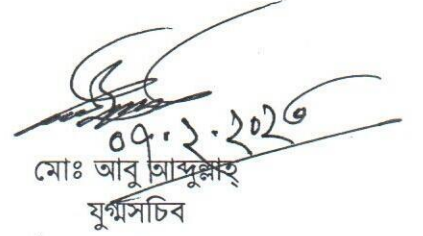 ০৭.২.২০২৩
মোঃ আবু আব্দুল্লাহ্
যুগ্মসচিব